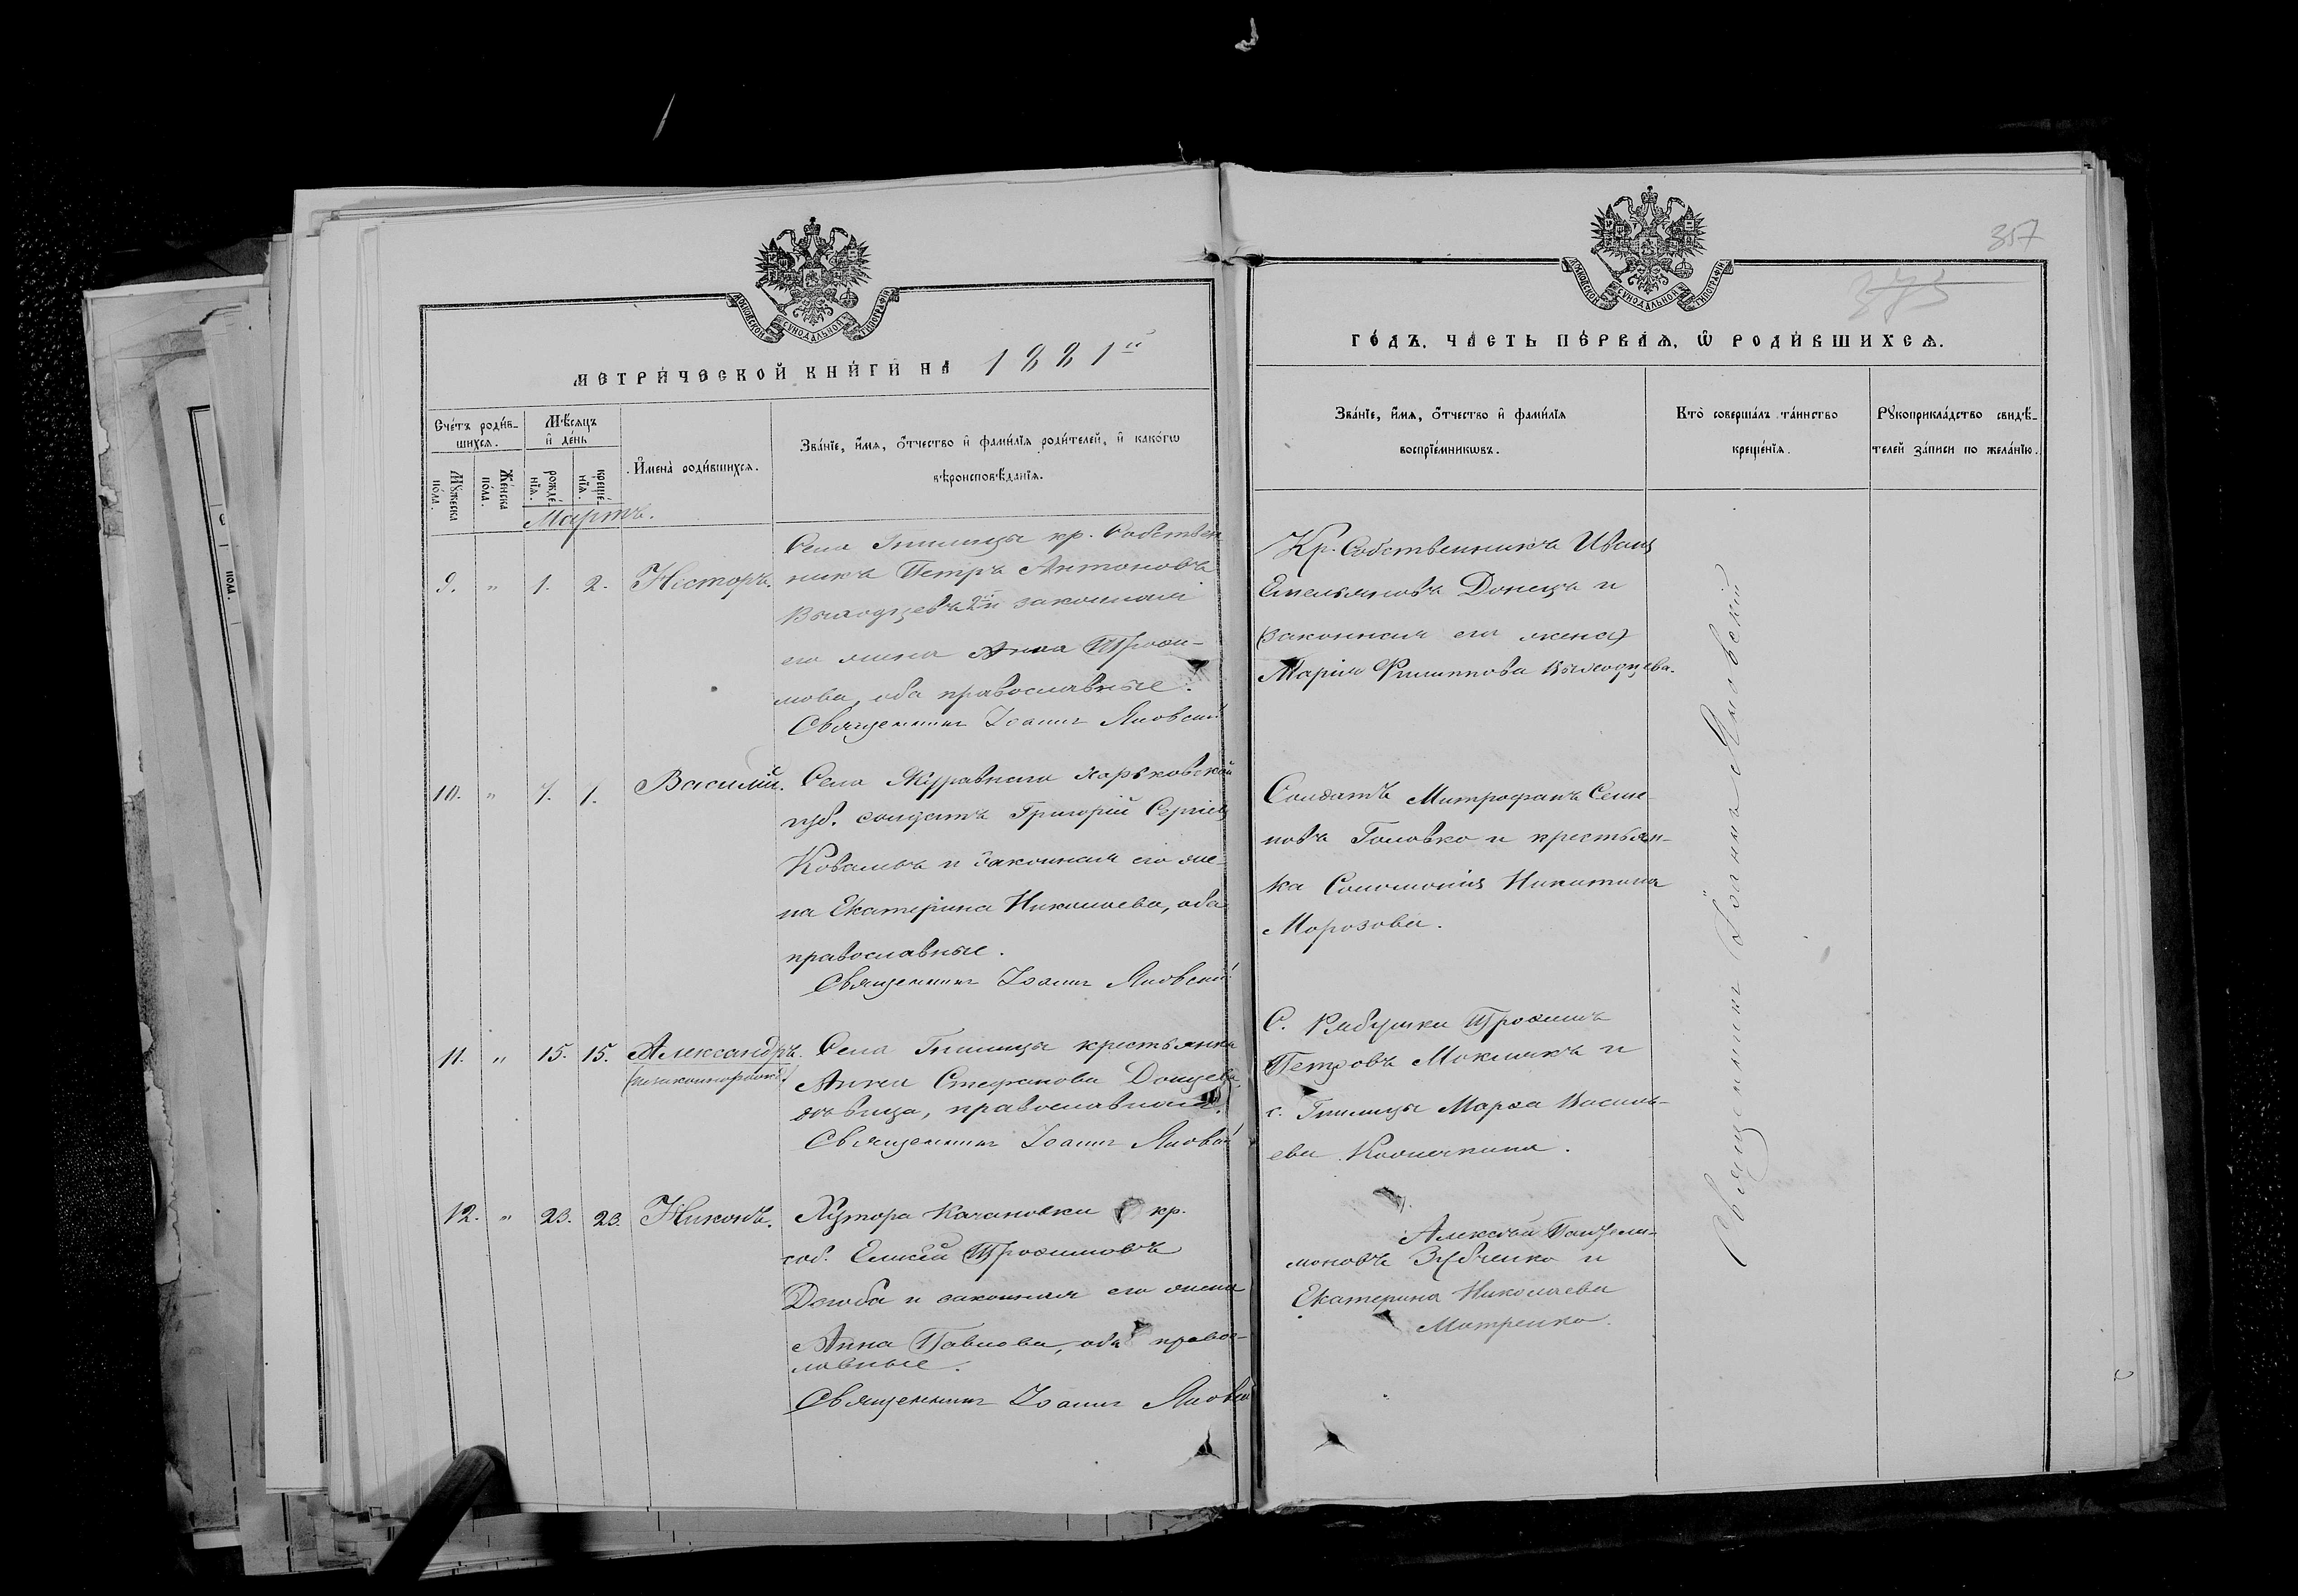 357
375
МОСКОВСКОЙ СУНОДАЛЬНОЙ ТИПОГРАФІИ
МОСКОВСКОЙ СУНОДАЛЬНОЙ ТИПОГРАФІИ
МЕТРИ́ЧЕСКОЙ КНИ́ГИ НА 1881й
ГО́ДЪ, ЧА́СТЬ ПЕ́РВАѦ, Ѡ҃ РОДИ́ВШИХСѦ.
Сче́тъ роди́в-
шихсѧ.
Мꙋ́жеска по́ла.
Же́нска по́ла.
Мѣ́сѧцъ
и҆ де́нь
рожде́нїѧ.
креще́нїѧ.
И҆мена̀ роди́вшихсѧ.
Зва́нїе, и҆́мѧ, ѻ҆́тчество и҆ фами́лїѧ роди́телей, и҆ како́гѡ
вѣроисповѣ́данїѧ.
Зва́нїе, и҆́мѧ, ѻ҆́тчество и҆ фами́лїѧ
воспрїе́мникѡвъ.
Кто̀ соверша́лъ та́инство
креще́нїѧ.
Рꙋкоприкла́дство свидѣ́-
телей за́писи по жела́нїю.
Мартъ.
9. " 1. 2. Несторъ.
Села Гнилицы кр. Собствен
никъ Петръ Антоновъ
Выходцевъ 2й и законная
его жена Анна Трохи-
мова, оба православные.
Священникъ Іоаннъ Яновский
Кр. Собственникъ Иванъ
Емельяновъ Донецъ и
(законная его жена)
Марія Филиппова Выходцева.
10. " 7. 7. Василий.
Села Журавнаго Харьковской
губ. солдатъ Григорій Сергіевъ
Коваль и законная его же-
на Екатерина Николаева, оба
православные.
Священникъ Іоаннъ Яновский
Солдатъ Митрофанъ Семе-
новъ Головко и крестьян-
ка Соломонія Никитина
Морозова.
11. " 15. 15. Александръ.
(незаконнорожд.)
Села Гнилицы крестьянка
Анна Стефанова Донцева
дѣвица, православная.
Священникъ Іоаннъ Яновский
С. Рябушки Трохимъ
Петровъ Моклякъ и
с. Гнилицы Марѳа Василь-
ева
12. " 23. 23. Никонъ.
Хутора Качановки кр.
соб. Елисей Трохимовъ
и законная его жена
Анна Павлова, оба правос-
лавные.
Священникъ Іоаннъ Яновский
Алексѣй Пантели-
моновъ Зубченко и
Екатерина Николаева
Митренко.
Священникъ Іоаннъ Яновскій